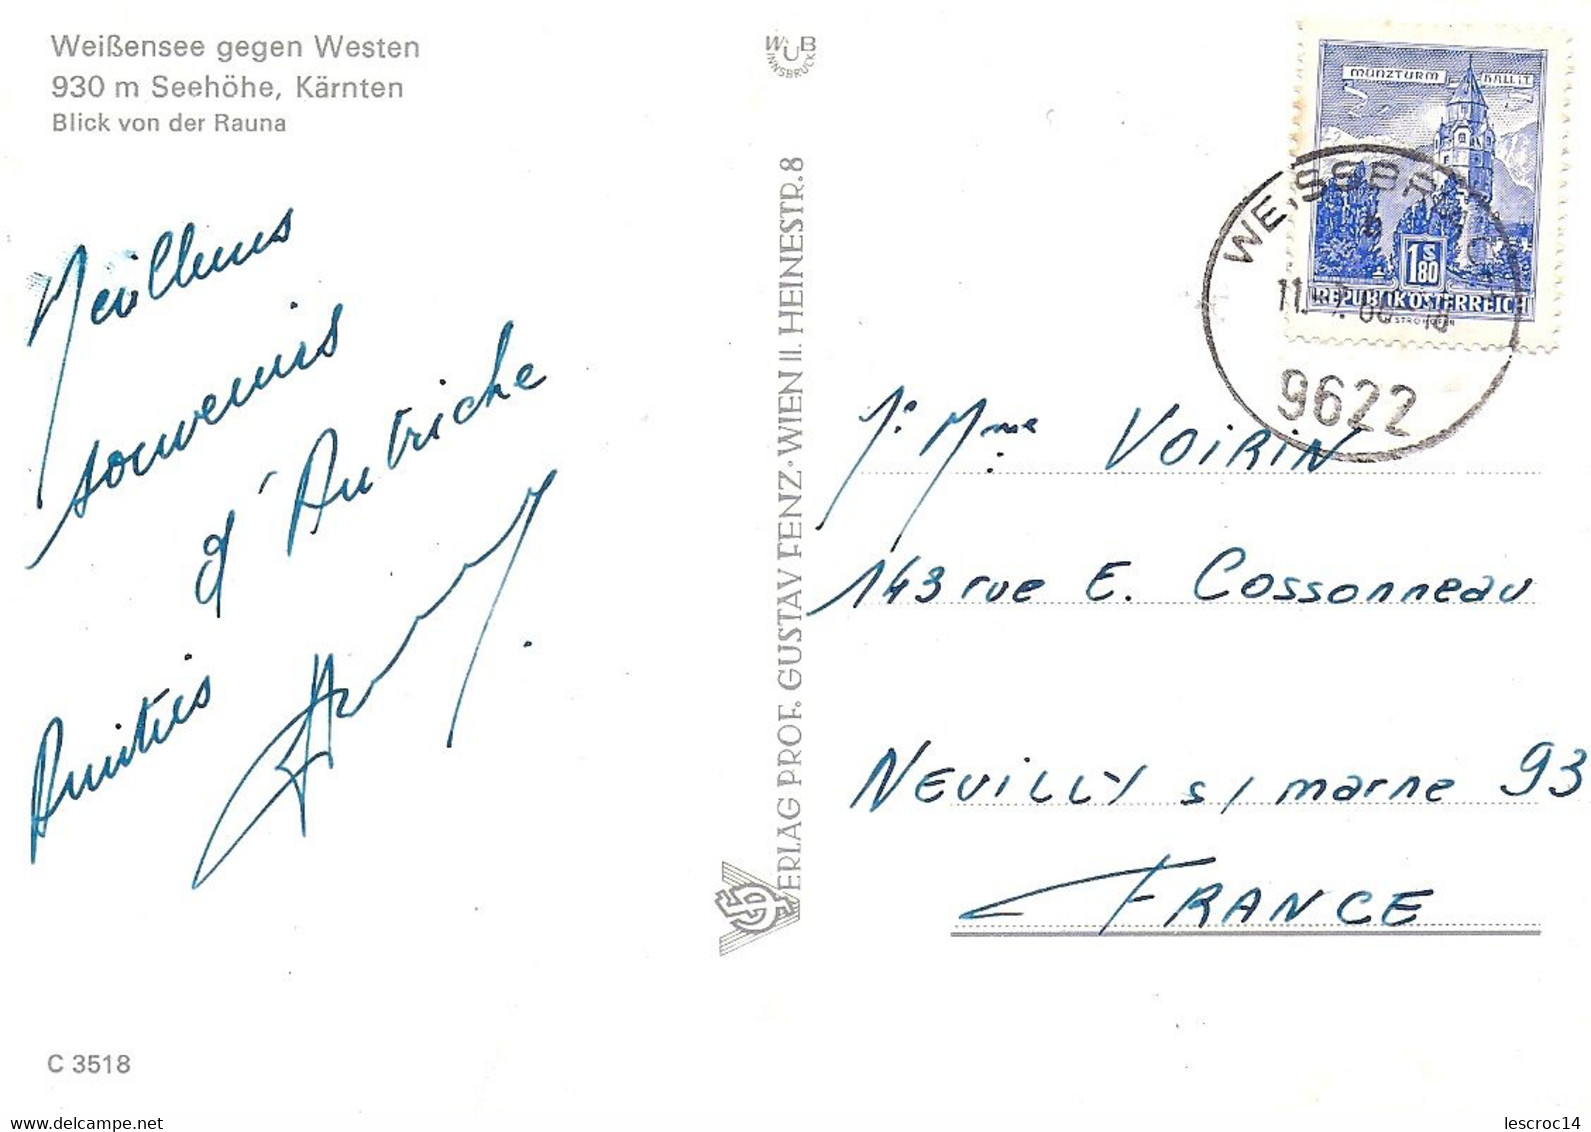 Weißensee gegen Westen
930 m Seehöhe, Kärnten
Blick von der Rauna
Meilleurs
souvenirs
d'Autriche
Amitiés
C 3518
WUB
INNSBRUCK
VERLAG PROF. GUSTAV FENZ·WIEN II. HEINESTR. 8
MÜNZTURM HALL i.T.
1 S 80
REPUBLIK ÖSTERREICH
WEISSBRIACH
9622
Mme VOIRIN
143 rue E. Cossonneau
NEUILLY s/ marne 93
FRANCE
delcampe.net
lescroc14